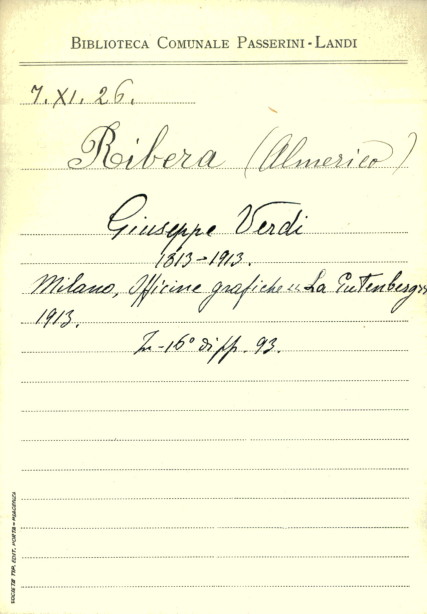 BIBLIOTECA COMUNALE PASSERINI-LANDI
7. XI. 26.
Ribera (Almerico)
Giuseppe Verdi
1813-1913.
Milano, Officine grafiche "La Gutenberg"
1913.
In-16° di pp. 93.
SOCIETÀ TIP. EDIT. PORTA - PIACENZA